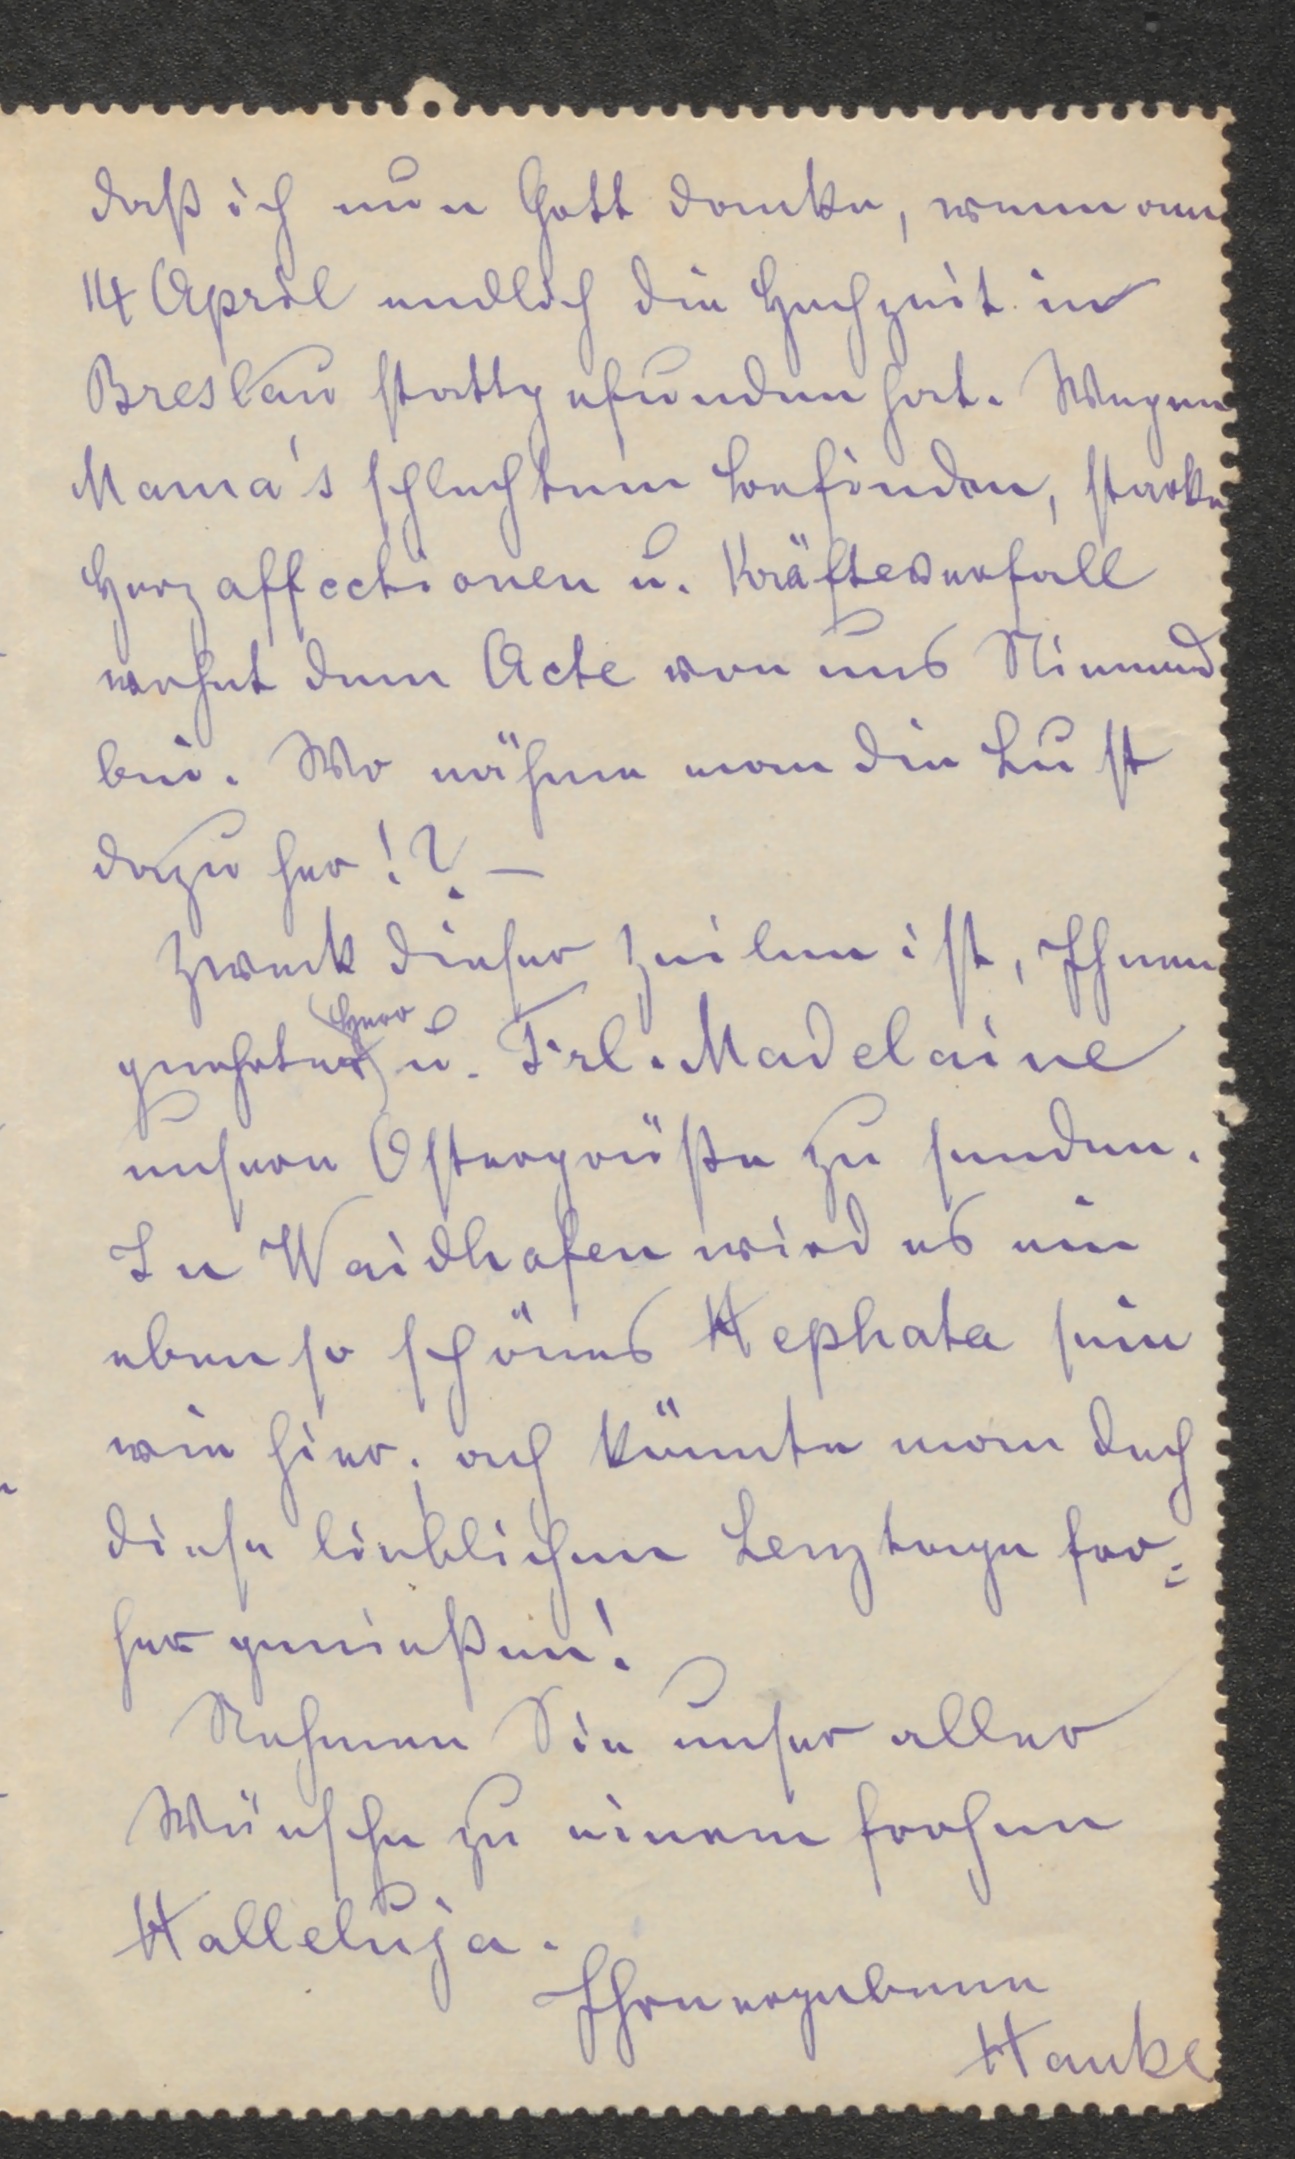 daß ich nun Gott danke, wenn am
14 April endlich die Hochzeit in
Breslau stattgefunden hat. Wegen
Mama's schlechtem Befinden, starke
Herzaffectionen u. Kräfteverfall
wohnt dem Acte von uns Niemand
bei. Wo nähme man die Lust
dazu her!? –
Zweck dieser Zeilen ist, Ihnen
Herr
geehrter u. Frl. Madelaine
unsere Ostergrüße zu senden.
In Waidhofen wird es ein
eben so schönes Hephata sein
wie hier; ach könnte man doch
diese lieblichen Lenztage frö-
her genießen!
Nehmen Sie unser aller
Wünsche zu einem frohen
Halleluja.
Ihre ergebene
Hanke